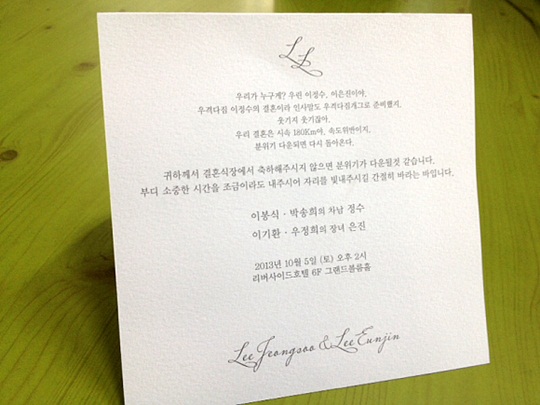 LL
우리가 누구게? 우린 이정수, 이은진이야.
우격다짐 이정수의 결혼이라 인사말도 우격다짐개그로 준비했지.
웃기지 웃기잖아.
우리 결혼은 시속 180Km야, 속도위반이지.
분위기 다운되면 다시 돌아온다.
귀하께서 결혼식장에서 축하해주시지 않으면 분위기가 다운될것 같습니다.
부디 소중한 시간을 조금이라도 내주시어 자리를 빛내주시길 간절히 바라는 바입니다.
이봉식 · 박송희의 차남 정수
이기환 · 우정희의 장녀 은진
2013년 10월 5일 (토) 오후 2시
리버사이드호텔 6F 그랜드볼룸홀
Lee Jeongsoo & Lee Eunjin